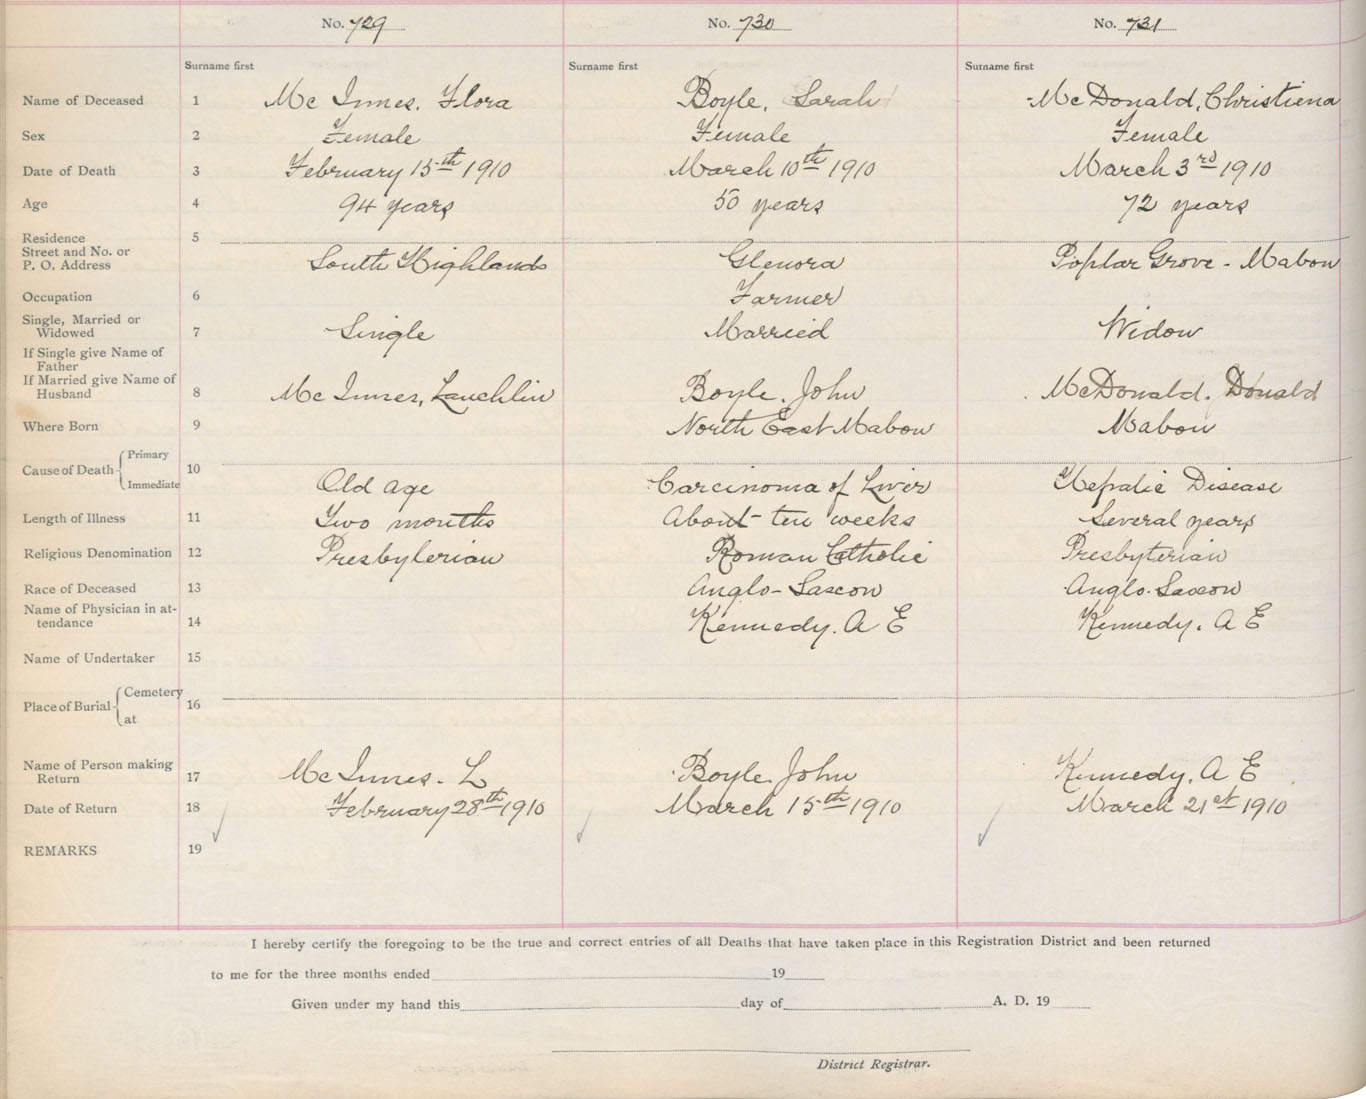 No. 729 No. 730 No. 731
Surname first Surname first Surname first
Name of Deceased 1 Mc Innes, Flora Boyle, Sarah McDonald, Christiena
Sex 2 Female Female Female
Date of Death 3 February 15th 1910 March 10th 1910 March 3rd 1910
Age 4 94 years 50 years 72 years
Residence 5
Street and No. or
P. O. Address South Highlands Glenora Poplar Grove - Mabou
Occupation 6 Farmer
Single, Married or
Widowed 7 Single Married Widow
If Single give Name of
Father
If Married give Name of
Husband 8 Mc Innes, Lauchlin Boyle, John McDonald, Donald
Where Born 9 North East Mabou Mabou
Cause of Death Primary 10
Immediate Old age Carcinoma of Liver Hepatic Disease
Length of Illness 11 Two months About ten weeks Several years
Religious Denomination 12 Presbyterian Roman Catholic Presbyterian
Race of Deceased 13 Anglo-Saxon Anglo-Saxon
Name of Physician in at-
tendance 14 Kennedy. A E Kennedy. A E
Name of Undertaker 15
Place of Burial Cemetery 16
at
Name of Person making
Return 17 Mc Innes. L Boyle, John Kennedy. A E
Date of Return 18 February 28th 1910 March 15th 1910 March 21st 1910
REMARKS 19
I hereby certify the foregoing to be the true and correct entries of all Deaths that have taken place in this Registration District and been returned
to me for the three months ended 19
Given under my hand this day of A. D. 19
District Registrar.